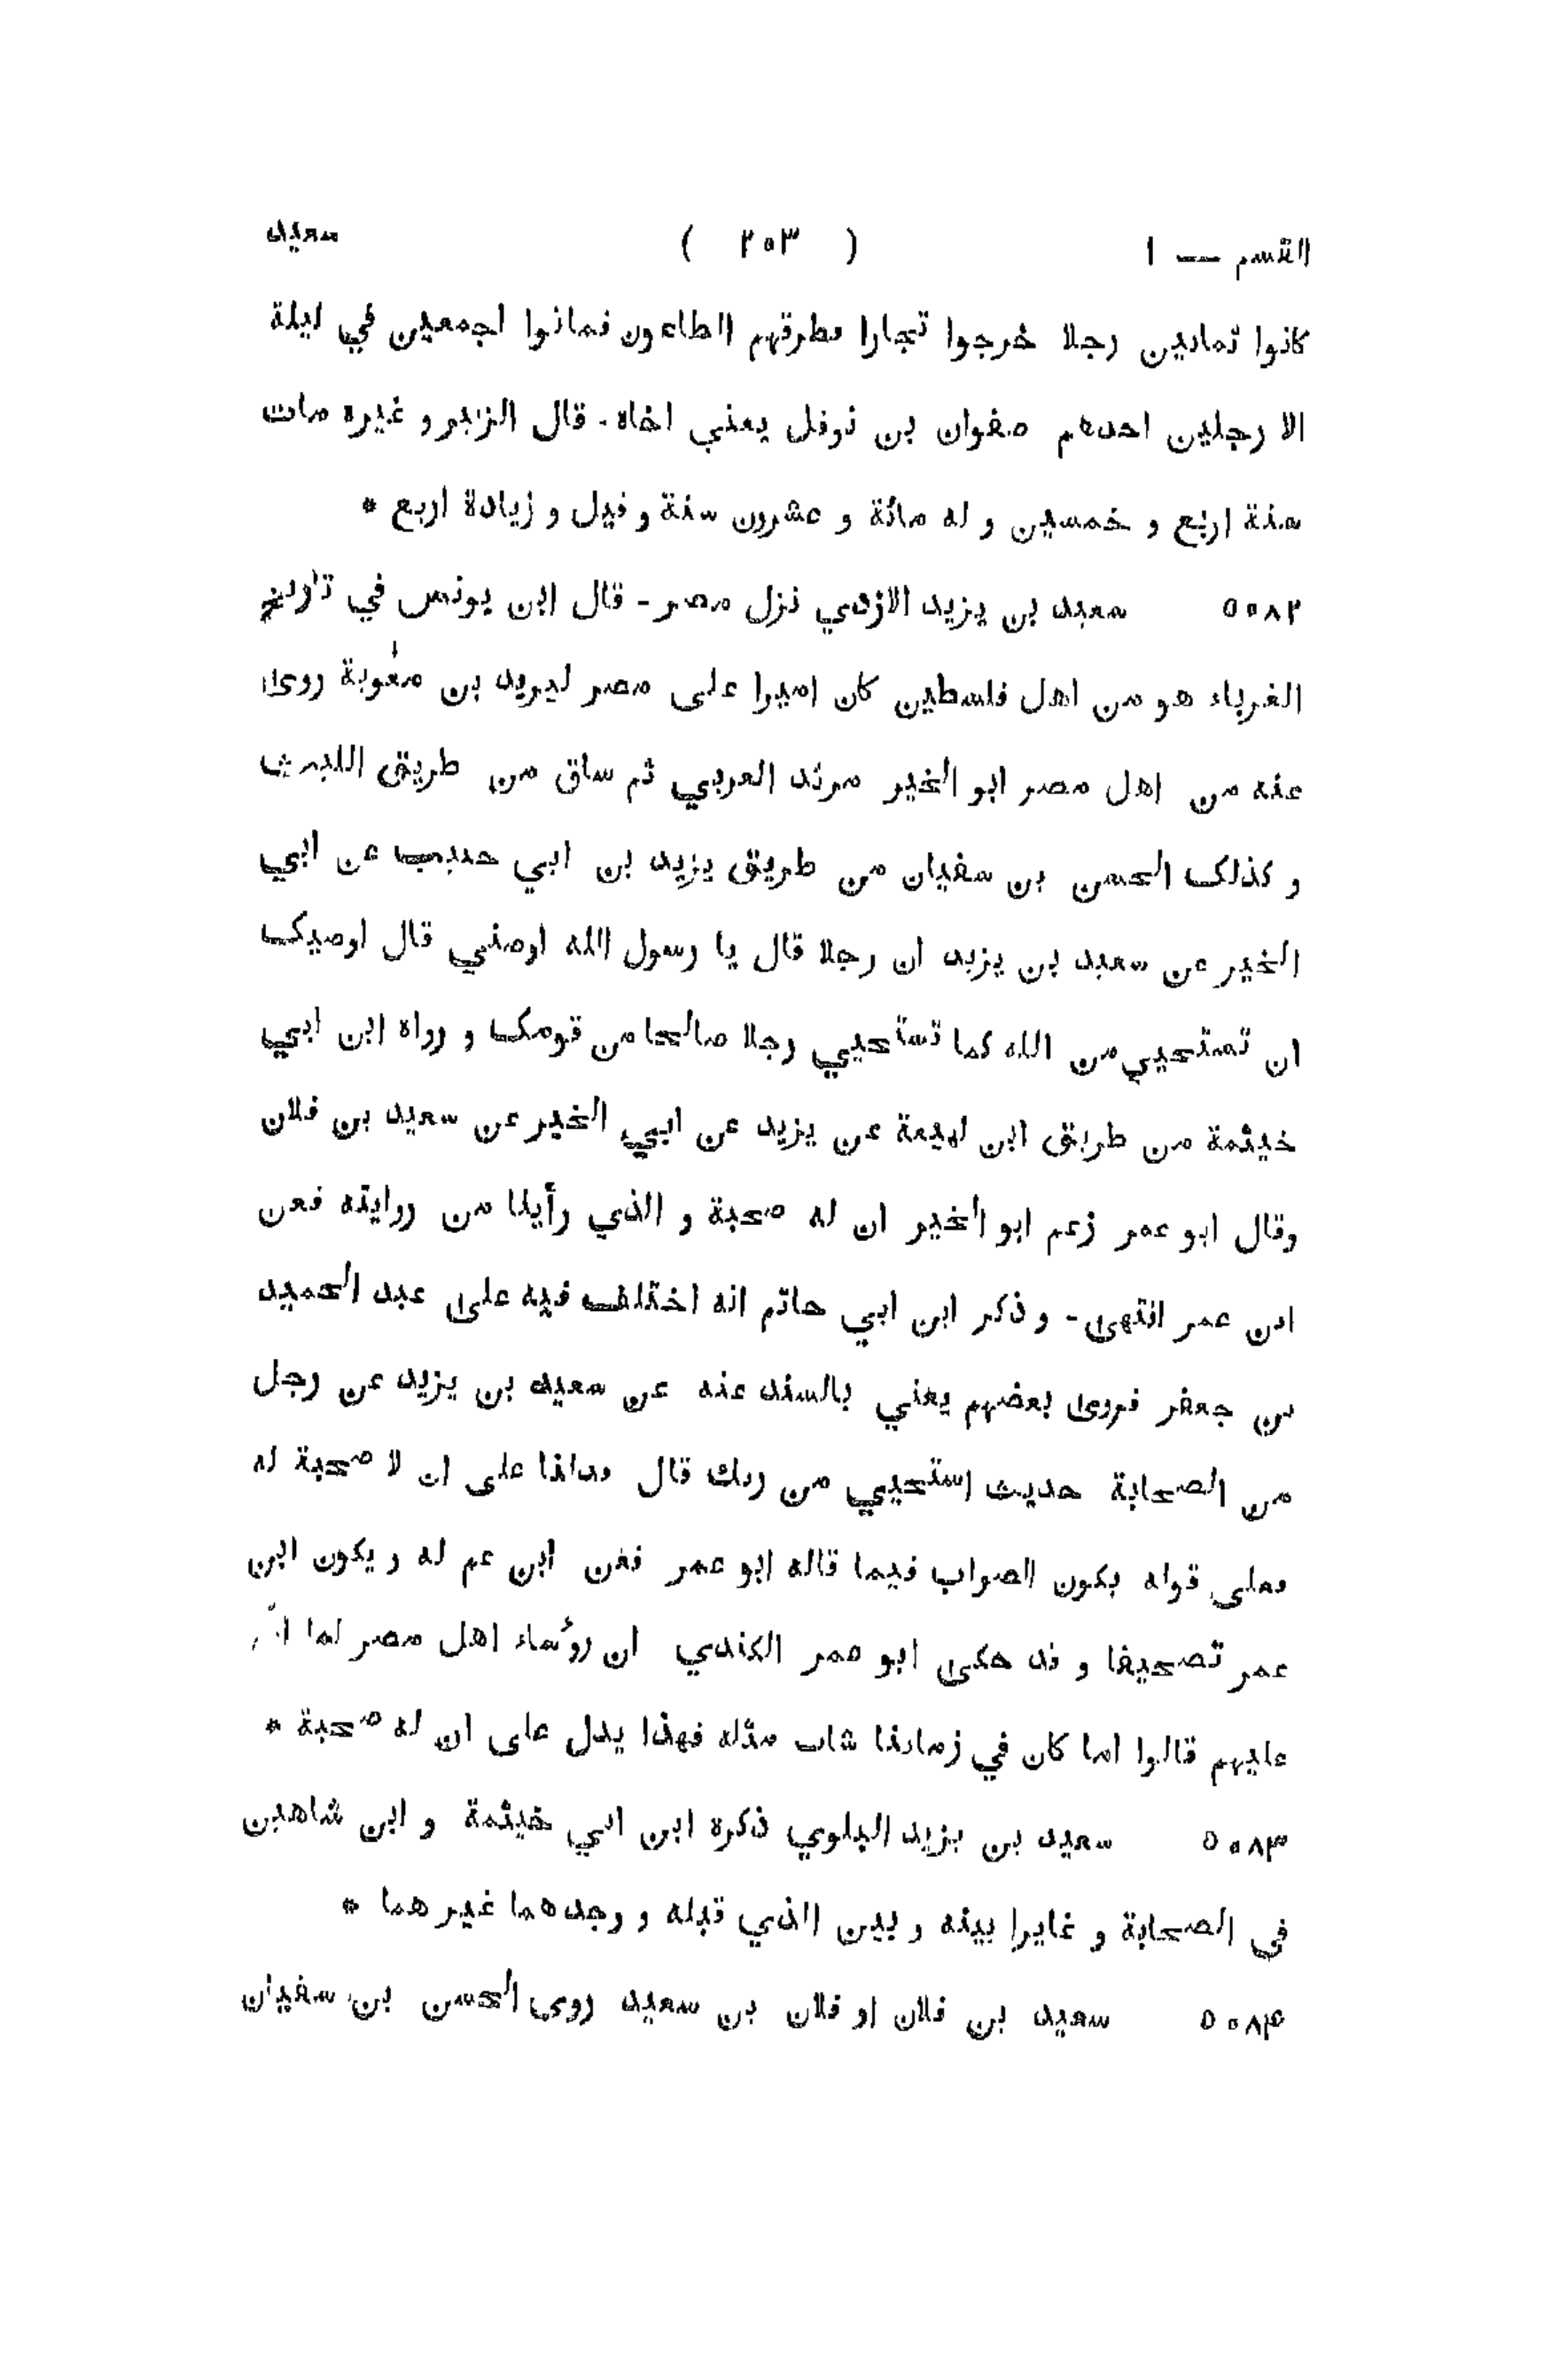 القسم — ١ ( ٢٥٣ ) سعيد
كانوا ثمانين رجلا خرجوا تجارا فطرقهم الطاعون فماتوا اجمعين في ليلة
الا رجلين احدهم صفوان بن نوفل يعني اخاه - قال الزبير و غيره مات
سنة اربع و خمسين و له مائة و عشرون سنة و قيل و زيادة اربع *
٥٠٨٢ سعيد بن يزيد الازدي نزل مصر - قال ابن يونس في تاريخ
الغرباء هو من اهل فلسطين كان اميرا على مصر ليزيد بن معٰوية روى
عنه من اهل مصر ابو الخير مرثد العربي ثم ساق من طريق الليث
و كذلك الحسن بن سفيان من طريق يزيد بن ابي حبيب عن ابي
الخير عن سعيد بن يزيد ان رجلا قال يا رسول الله اوصني قال اوصيك
ان تستحيي من الله كما تستحيي رجلا صالحا من قومك و رواه ابن ابي
خيثمة من طريق ابن لهيعة عن يزيد عن ابي الخير عن سعيد بن فلان
وقال ابو عمر زعم ابو الخير ان له صحبة و الذي رأينا من روايته فعن
ابن عمر انتهى - و ذكر ابن ابي حاتم انه اختلف فيه على عبد الحميد
بن جعفر فروى بعضهم يعني بالسند عنه عن سعيد بن يزيد عن رجل
من الصحابة حديث استحيي من ربك قال فدلنا على ان لا صحبة له
فعلى قوله يكون الصواب فيما قاله ابو عمر فعن ابن عم له و يكون ابن
عمر تصحيفا و قد حكى ابو عمر الكندي ان رؤساء اهل مصر لما
عليهم قالوا اما كان في زماننا شاب مثله فهذا يدل على ان له صحبة *
٥٠٨٣ سعيد بن يزيد البلوي ذكره ابن ابي خيثمة و ابن شاهين
في الصحابة و غايرا بينه و بين الذي قبله و وجدهما غير هما *
٥٠٨٤ سعيد بن فلان او فلان بن سعيد روى الحسن بن سفيان